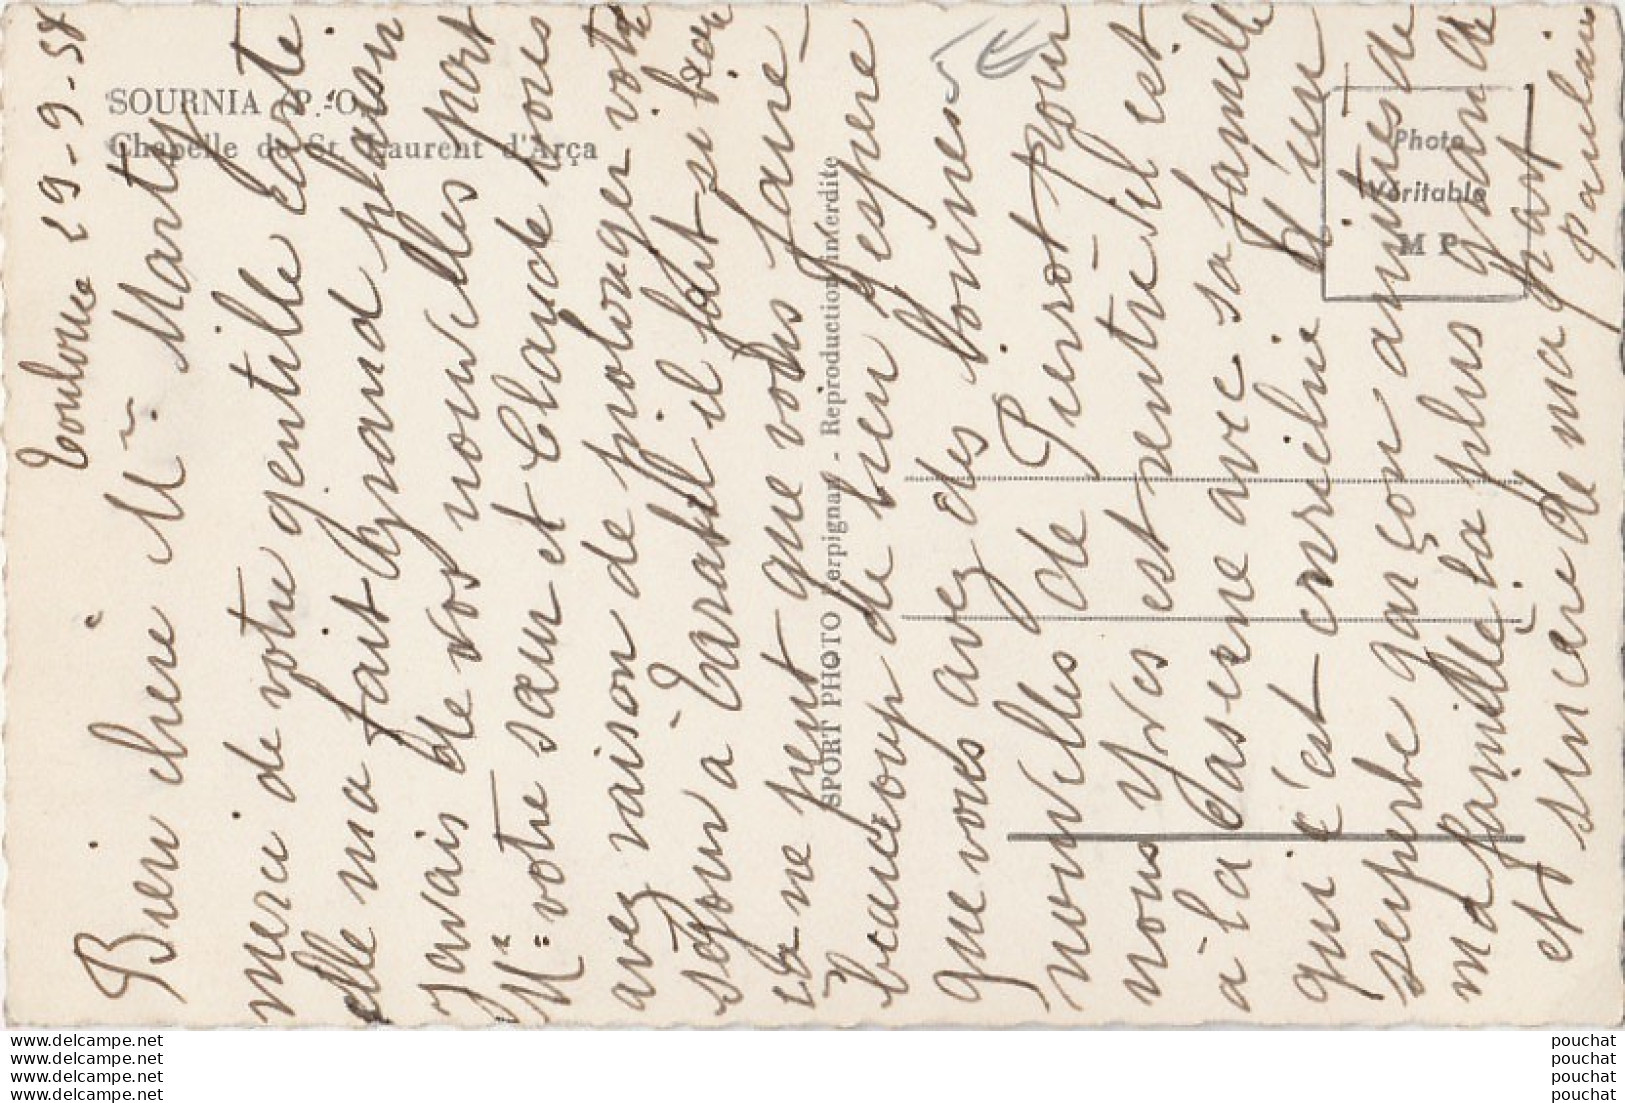 SOURNIA (P.-O.)
Chapelle de St. Laurent d'Arça
SPORT PHOTO Perpignan - Reproduction interdite
Photo
Véritable
M P
Toulouse 29-9-58
Bien chère Me Marty
merci de votre gentille carte
elle ma fait grand plaisir
javais de vos nouvelles part
Me votre sœur et Claude vous
avez raison de prolonger votre
séjour à Tarat il fait si bon
sa ne peut que vous faire
beaucoup de bien jespere
que vous avez des bonnes
nouvelles de Pierrot pour
nous Yves est rentré il est
à la caserne avec sa famille
qui c'est enrichie d'un
superbe garçon amitiés de
ma famille la plus grande
et sincère de ma part
www.delcampe.net
www.delcampe.net
www.delcampe.net
www.delcampe.net
pouchat
pouchat
pouchat
pouchat